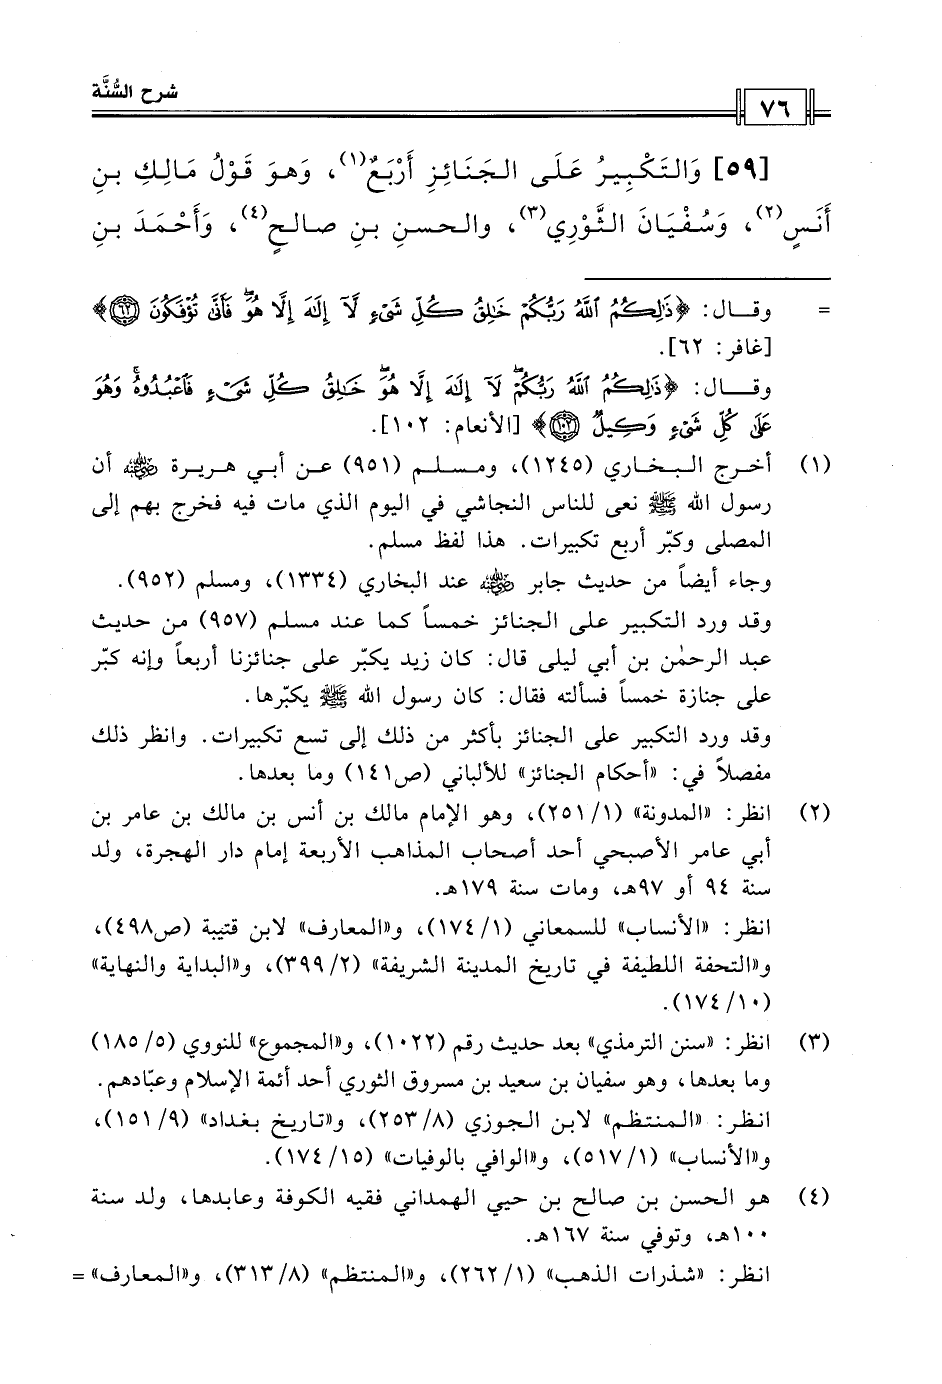 شرح السُّنَّة
٧٦
[٥٩] وَالتَكْبِيرُ عَلَى الجَنَائِزِ أَرْبَعٌ(١)، وَهوَ قَوْلُ مَالِكِ بنِ
أَنَسٍ(٢)، وَسُفْيَانَ الثَّوْرِي(٣)، والحسنِ بنِ صالحٍ(٤)، وَأَحْمَدَ بنِ
= وقال: ﴿ذَٰلِكُمُ ٱللَّهُ رَبُّكُمْ خَٰلِقُ كُلِّ شَىْءٍ لَّآ إِلَٰهَ إِلَّا هُوَۖ فَأَنَّىٰ تُؤْفَكُونَ ٦٢﴾
[غافر: ٦٢].
وقال: ﴿ذَٰلِكُمُ ٱللَّهُ رَبُّكُمْۖ لَآ إِلَٰهَ إِلَّا هُوَۖ خَٰلِقُ كُلِّ شَىْءٍ فَٱعْبُدُوهُۚ وَهُوَ
عَلَىٰ كُلِّ شَىْءٍ وَكِيلٌ ١٠٢﴾ [الأنعام: ١٠٢].
(١) أخرج البخاري (١٢٤٥)، ومسلم (٩٥١) عن أبي هريرة رضي الله عنه أن
رسول الله ﷺ نعى للناس النجاشي في اليوم الذي مات فيه فخرج بهم إلى
المصلى وكبّر أربع تكبيرات. هذا لفظ مسلم.
وجاء أيضاً من حديث جابر رضي الله عنه عند البخاري (١٣٣٤)، ومسلم (٩٥٢).
وقد ورد التكبير على الجنائز خمساً كما عند مسلم (٩٥٧) من حديث
عبد الرحمٰن بن أبي ليلى قال: كان زيد يكبّر على جنائزنا أربعاً وإنه كبّر
على جنازة خمساً فسألته فقال: كان رسول الله ﷺ يكبّرها.
وقد ورد التكبير على الجنائز بأكثر من ذلك إلى تسع تكبيرات. وانظر ذلك
مفصلاً في: «أحكام الجنائز» للألباني (ص١٤١) وما بعدها.
(٢) انظر: «المدونة» (١/ ٢٥١)، وهو الإمام مالك بن أنس بن مالك بن عامر بن
أبي عامر الأصبحي أحد أصحاب المذاهب الأربعة إمام دار الهجرة، ولد
سنة ٩٤ أو ٩٧هـ، ومات سنة ١٧٩هـ.
انظر: «الأنساب» للسمعاني (١/ ١٧٤)، و«المعارف» لابن قتيبة (ص٤٩٨)،
و«التحفة اللطيفة في تاريخ المدينة الشريفة» (٢/ ٣٩٩)، و«البداية والنهاية»
(١٠/ ١٧٤).
(٣) انظر: «سنن الترمذي» بعد حديث رقم (١٠٢٢)، و«المجموع» للنووي (٥/ ١٨٥)
وما بعدها، وهو سفيان بن سعيد بن مسروق الثوري أحد أئمة الإسلام وعبّادهم.
انظر: «المنتظم» لابن الجوزي (٨/ ٢٥٣)، و«تاريخ بغداد» (٩/ ١٥١)،
و«الأنساب» (١/ ٥١٧)، و«الوافي بالوفيات» (١٥/ ١٧٤).
(٤) هو الحسن بن صالح بن حيي الهمداني فقيه الكوفة وعابدها، ولد سنة
١٠٠هـ، وتوفي سنة ١٦٧هـ.
انظر: «شذرات الذهب» (١/ ٢٦٢)، و«المنتظم» (٨/ ٣١٣)، و«المعارف» =